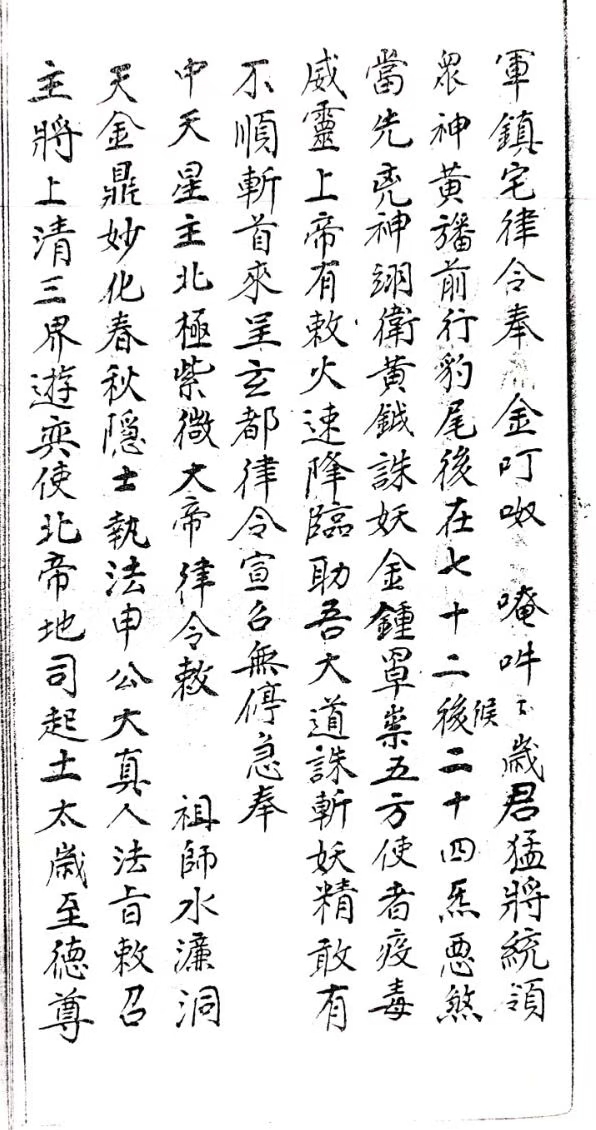 軍鎮宅律令奉 金叮呶 唵吽 歲君猛將統領
眾神黃旛前行豹尾後在七十二後候二十四炁惡煞
當先兇神翊衛黃鉞誅妖金鍾罩祟五方使者疫毒
威靈上帝有敕火速降臨助吾大道誅斬妖精敢有
不順斬首來呈玄都律令宣召無停急奉
中天星主北極紫微大帝律令敕 祖師水濂洞
天金鼎妙化春秋隱士執法申公大真人法旨敕召
主將上清三界遊奕使北帝地司起土太歲至德尊